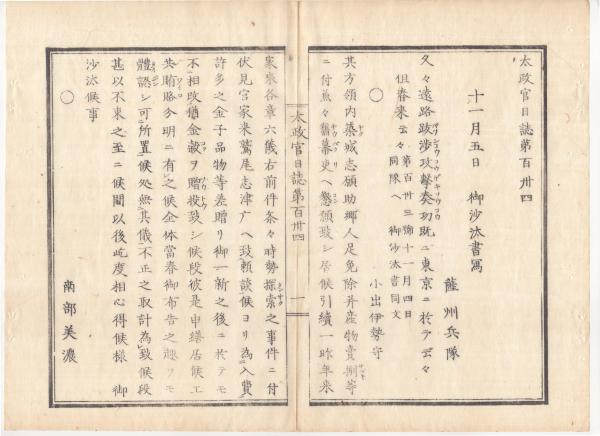 太政官日誌第百卅四
十一月五日 御沙汰書寫
薩州兵隊
久々遠路跋渉攻撃奏功既ニ東京ニ於テ云々
但春来云々 第百卅三號十一月四日同隊ヘ御沙汰書同文
小出伊勢守
其方領内築城志願助郷人足免除并産物賣捌等
ニ付兼々舊幕吏ヘ懇願致シ居候引續一昨年来
太政官日誌第百卅四
一
家来各章六儀右前件条々時勢探索之事件ニ付
伏見宮家来鷲尾志津广ヘ致頼談候ヨリ為入費
許多之金子品物等差贈リ御一新之後ニ於テモ
不相改猶金穀ヲ贈投致シ候段彼是申繕居候工
共賄賂分明ニ有之候全体當春御布告之趣ヲモ
體認シ可所置候処無其儀不正之取計為致候段
甚以不束之至ニ候間以後屹度相心得候様 御
沙汰候事
○
南部美濃